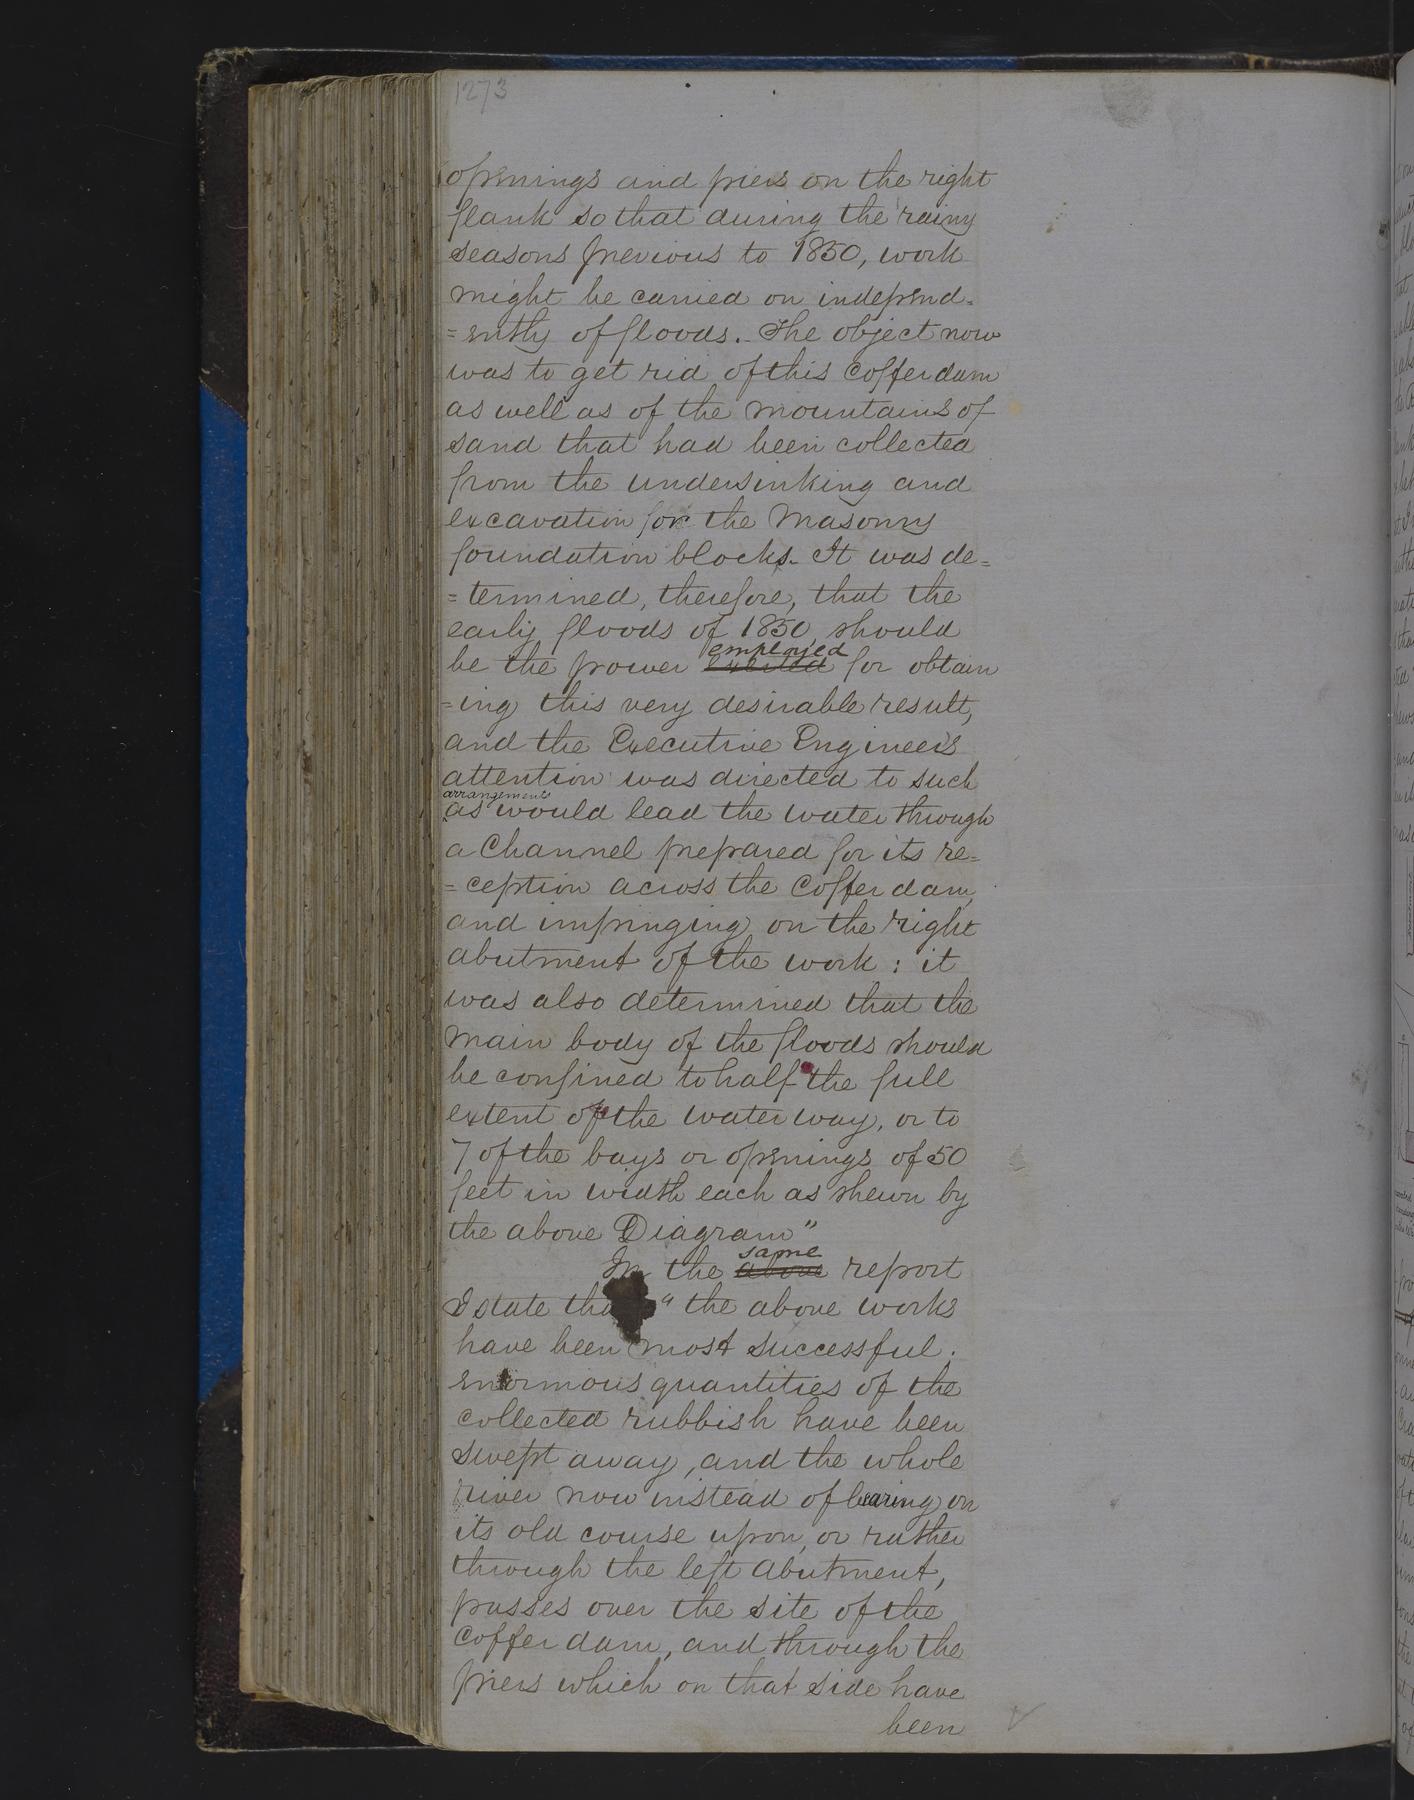 1273
openings and piers on the right
flank so that during the rainy
seasons previous to 1850, work
might be carried on independ-
=ently of floods. The object now
was to get rid of this coffer dam
as well as of the mountains of
sand that had been collected
from the undersinking and
excavation for the Masonry
foundation blocks. It was de=
=termined, therefore, that the
early floods of 1850, should
employed
be the power exerted for obtain
=ing this very desirable result,
and the Executive Engineers
attention was directed to such
arrangements
as would lead the water through
a Channel prepared for its re=
=ception across the Coffer dam,
and impinging on the right
abutment of the work : it
was also determined that the
main body of the floods should
be confined to half the full
extent of the water way, or to
7 of the bays or openings of 50
feet in width each as shewn by
the above Diagram"
same
In the above report
I state that "the above works
have been most successful.
enormous quantities of the
collected rubbish have been
swept away, and the whole
river now instead of bearing on
its old course upon, or rather
through the left abutment,
passes over the site of the
Coffer dam, and through the
piers which on that side have
been